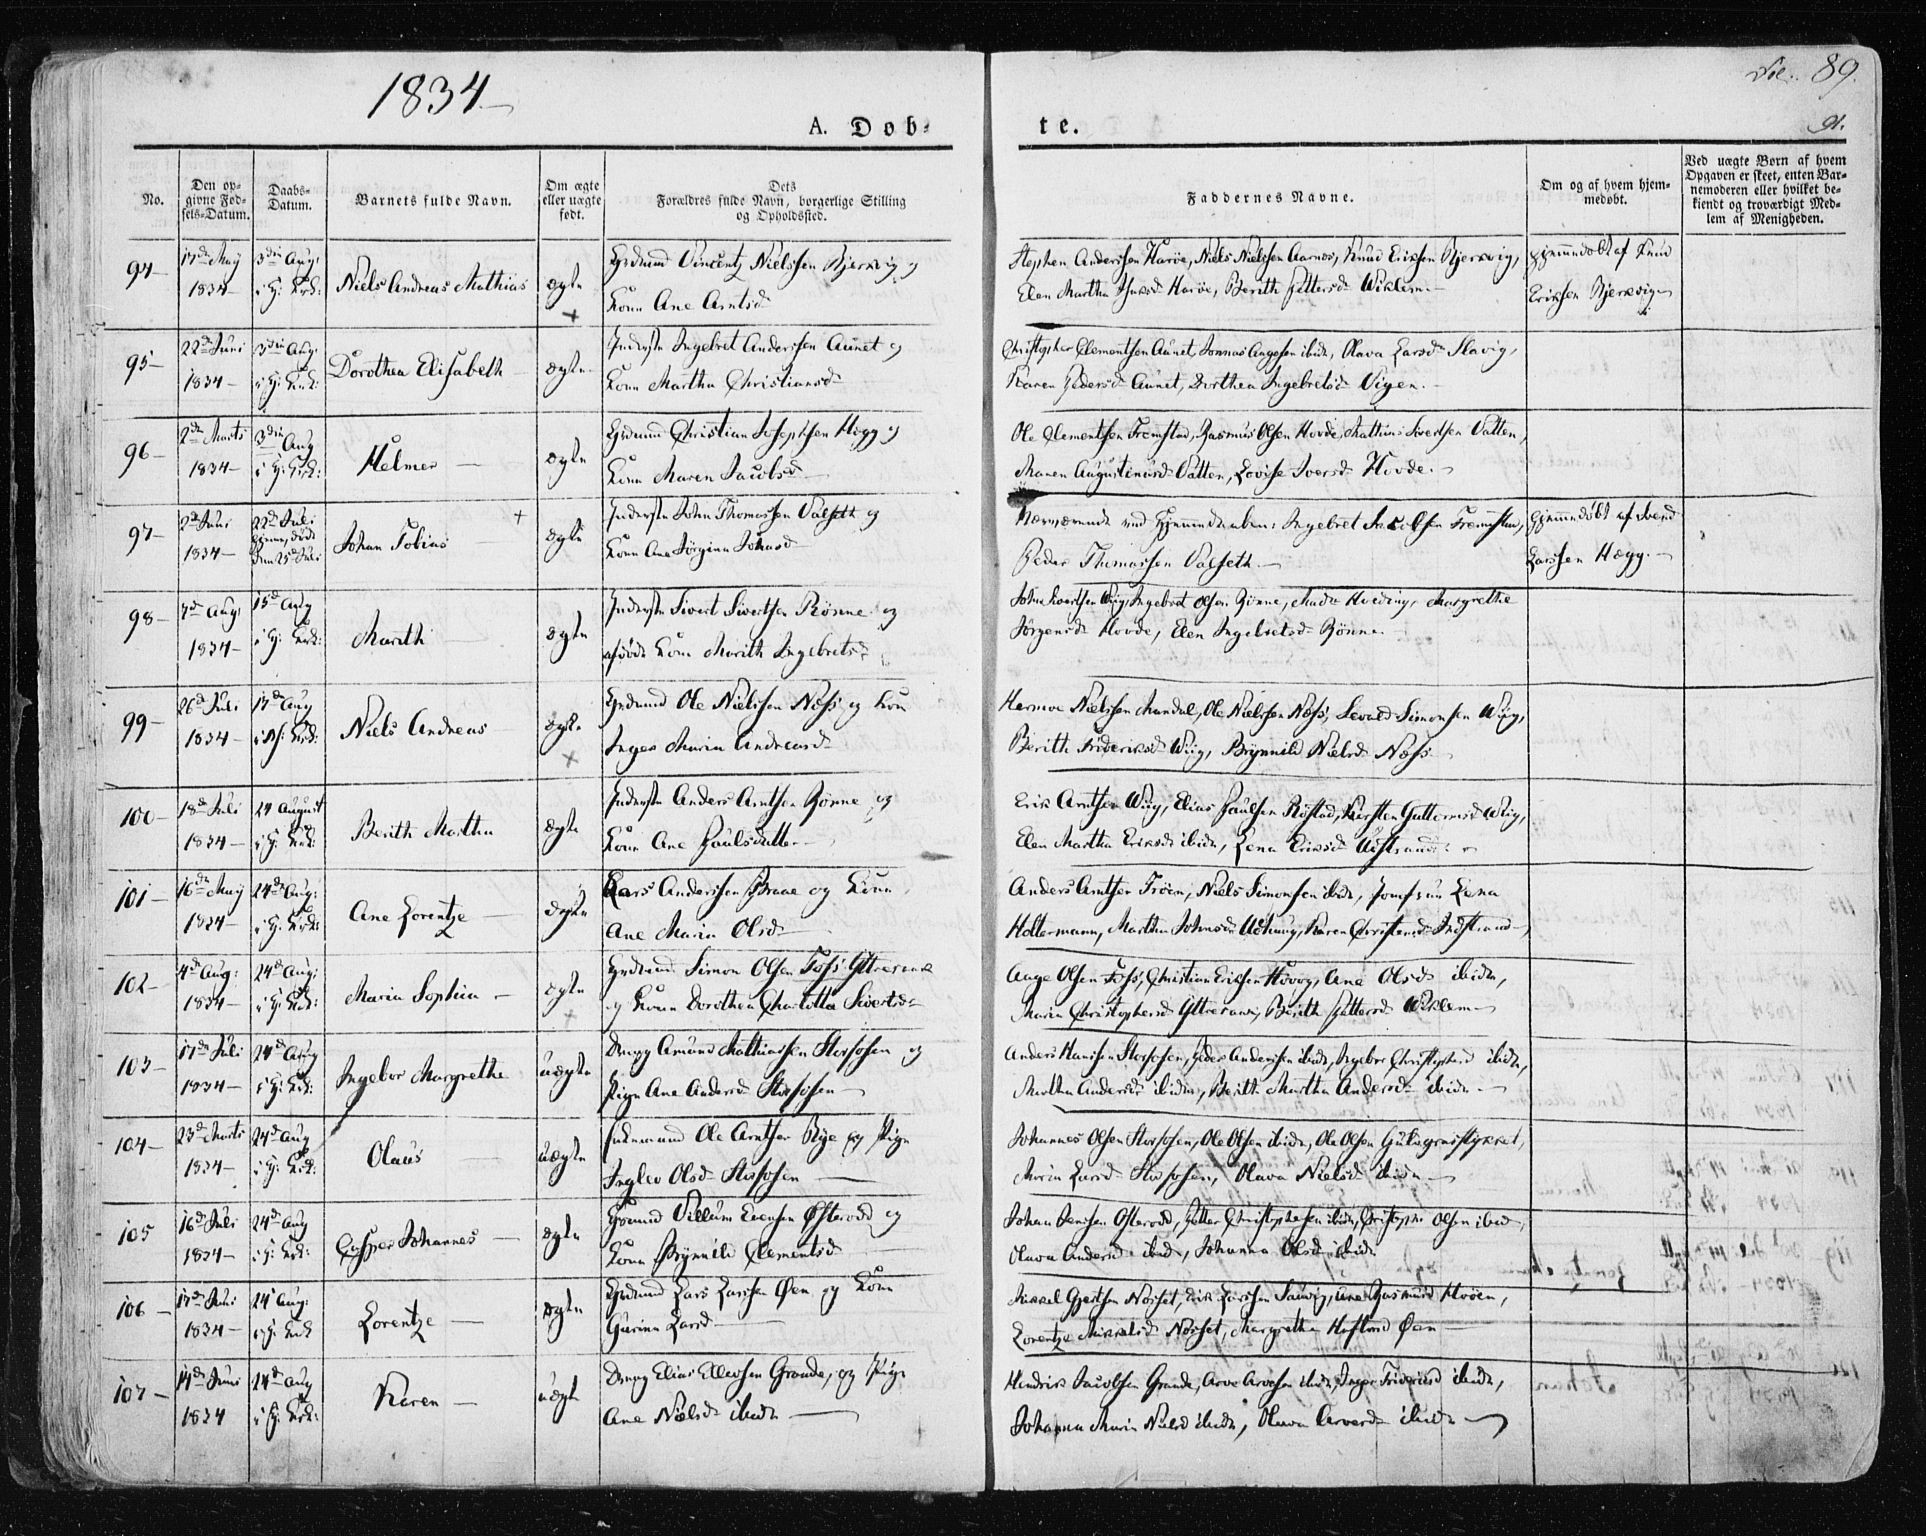 1834
89.
91.
A. Døb-
te.
No.
Den op-
givne Fød-
sels-Datum.
Daabs-
Datum.
Barnets fulde Navn.
Om ægte
eller uægte
født.
Dets
Forældres fulde Navn, borgerlige Stilling
og Opholdsted.
Faddernes Navne.
Om og af hvem hjem-
medøbt.
Ved uægte Børn af hvem
Opgaven er skeet, enten Bar-
nemoderen eller hvilket be-
kiendt og troværdigt Med-
lem af Menigheden.
94
17de Maij
1834
3die Aug:
Niels Andreas Mathias
ægte
Vincentz Nielssen Bjerkvig og
Kone Ane Arntsd
Stephen Anderssen Harøe, Niels Nielssen Aarnes, Knud Erikssen Bjerkvig,
Elen Martha Harøe, Berith Pettersd Wiklem
hjemmedøbt af Knud
Erikssen Bjerkvig
95
22de Juni
1834
3die Aug:
Dorothea Elisabeth
ægte
Inderste Ingebret Anderssen Aunet og
Kone Martha Christiansd
Christopher Clementsen Aunet, ibid, Olava Larsd Slavig,
Karen Pedersd Aunet, Dorthea Ingebretsd Vigen.
96
2den Marts
1834
3die Aug
Helmer
ægte
Christian Josephsen Hegg og
Kone Maren Jacobsd
Ole Clementsen Fremstad, Rasmus Olsen Hovde, Mathias Sivertsen Vatten,
Maren Augustinusd Vatten, Lovise Iversd Hovde.
97
2d Juni
1834
22d Juli
den 25d Juli
Johan Tobias
ægte
Inderste John Thomassen Valseth og
Kone Ane Jørgina Johnsd
Nærværende ved Hjemmedaaben: Ingebret Jacobsen Fremstad,
Peder Thomassen Valseth.
hjemmedøbt af Svend
Larssen Hegg.
98
7d Aug:
1834
15d Aug
Marith
ægte
Inderste Sivert Sivertsen Rønne og
Kone Marith Ingebretsd
John Sivertsen Wiig, Ingebret Olsen Rønne, Margrethe
Jørgensd Hovde, Elen Ingebretsd Rønne.
99
26d Juli
1834
17de Aug
Niels Andreas
ægte
Ole Nielssen Næss og Kone
Inger Maria Andreasd
Nielssen Mandal, Ole Nielssen Næss, Sevald Simonsen Wiig,
Berith Frideriksd Wiig, Brynnild Nielsd Næss
100
18d Juli
1834
24 August
Berith Martha
ægte
Inderste Anders Arntsen Rønne og
Kone Ane Paulsdatter
Erik Arntsen Wiig, Elias Paulsen Røstad, Kirsten Guttormsd Wiig,
Elen Martha Eriksd ibid, Lena Eriksd
101
16de Maij
1834
24de Aug:
Ane Lorentze
ægte
Lars Anderssen Braae og Kone
Ane Maria Olsd
Anders Arntsen Trøen, Niels Simonsen ibid, Jomfrue Lena
Holtermann, Martha Johnsd, Karen Christensd
102
4de Aug:
1834
24de Aug:
Maria Sophia
ægte
Simon Olsen Foss Yttre
og Kone Dorothea Charlotta Sivertsd
Aage Olsen Foss, Christian Erikssen, Ane Olsd ibid,
Maria Christophersd, Berith Pettersd Wiklem
103
17de Juli
1834
24de Aug
Ingebor Margrethe
uægte
Dreng Amund Mathiassen Storfosen og
Pige Ane Andersd Storfosen
Anders Hanssen Storfosen, Peder Anderssen ibid, Ingebor Christophersd ibid,
Martha Andersd ibid, Berith Martha Andersd ibid
104
23de Marts
1834
24de Aug
Olaus
uægte
Ole Arntsen Rye og Pige
Inglev Olsd Storfosen
Johannes Olsen Storfosen, Ole Olsen ibid, Ole Olsen
Maria Larsd Storfosen, Olava Nielsd ibid
105
16d Juli
1834
24de Aug
Casper Johannes
ægte
Villum Evensen Østerodd og
Kone Brynnild Clementsd
Johan Jenssen Østerodd, Petter Christophersen ibid, Christopher Olsen ibid,
Olava Andersd ibid, Johanna Olsd ibid
106
17de Juni
1834
24 Aug:
Lorentze
ægte
Lars Larssen Øen og Kone
Gurina Larsd
Mikkel Gjertsen Norset, Erik Larssen, Ane Rasmusd Moen,
Lorentze Mikkelsd Norset, Margretha Øen
107
14de Juni
1834
24de Aug
Karen
uægte
Dreng Elias Ellevsen Grande, og Pige
Ane Nielsd ibid
Hendrik Jacobsen Grande, Arve Arvesen ibid, Inger Frideriksd ibid,
Johanna Maria Nielsd ibid, Olava Arvesd ibid